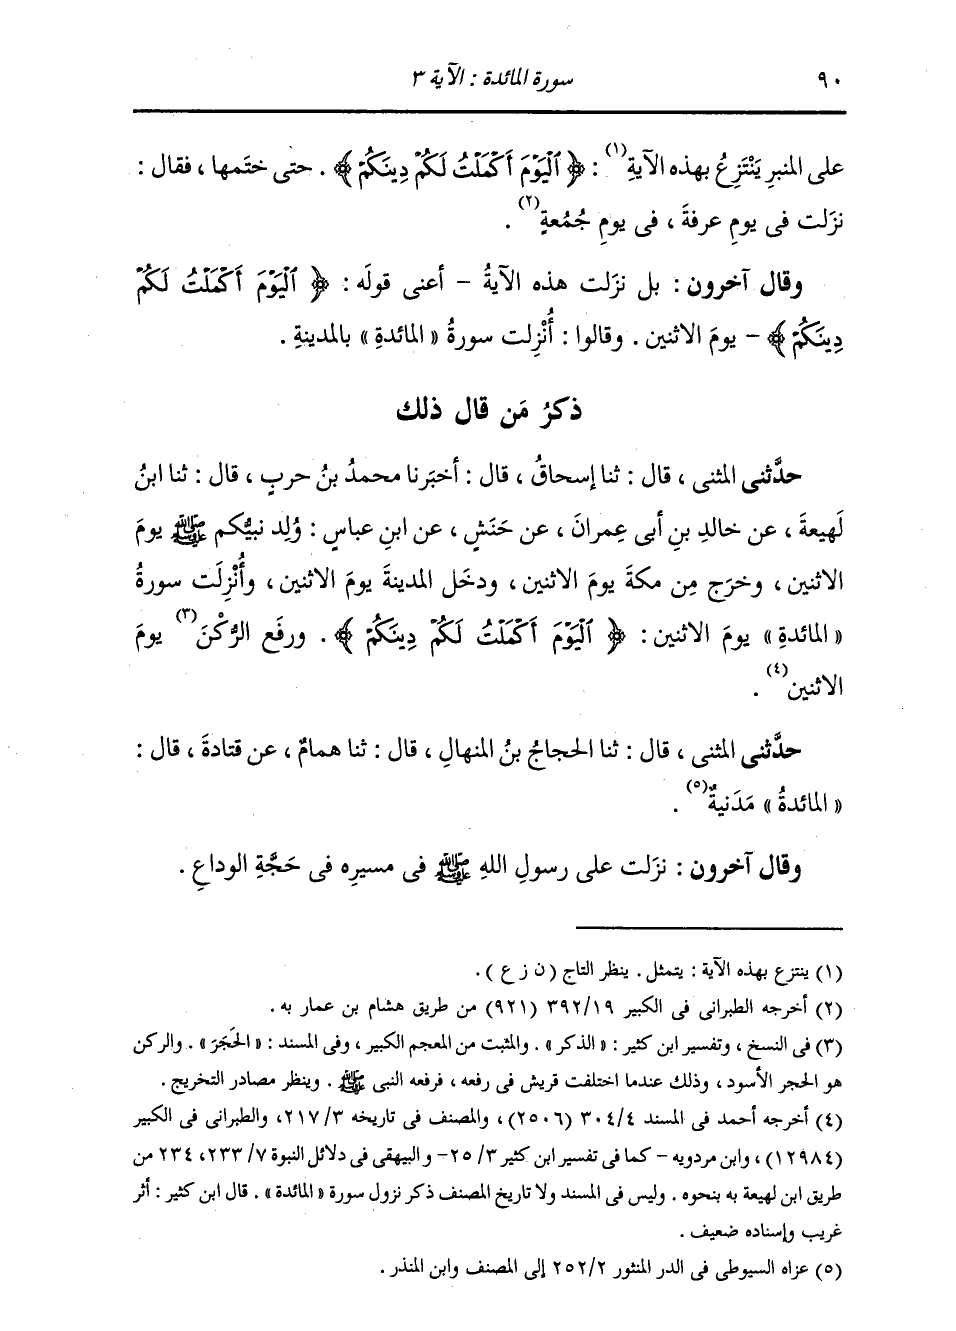 ٩٠
سورة المائدة : الآية ٣
على المنبرِ يَنْتَزِعُ بهذه الآيةِ(١) : ﴿ ٱلْيَوْمَ أَكْمَلْتُ لَكُمْ دِينَكُمْ ﴾ . حتى ختَمها ، فقال :
نزَلت فى يومِ عرفةَ ، فى يومِ جُمُعةٍ(٢) .
وقال آخرون : بل نزَلت هذه الآيةُ - أعنى قولَه : ﴿ ٱلْيَوْمَ أَكْمَلْتُ لَكُمْ
دِينَكُمْ ﴾ - يومَ الاثنين . وقالوا : أُنْزِلت سورةُ « المائدةِ » بالمدينةِ .
ذكرُ مَن قال ذلك
حدَّثنى المثنى ، قال : ثنا إسحاقُ ، قال : أخبَرنا محمدُ بنُ حربٍ ، قال : ثنا ابنُ
لَهيعةَ ، عن خالدِ بنِ أبى عِمرانَ ، عن حَنَشٍ ، عن ابنِ عباسٍ : وُلِد نبيُّكم ﷺ يومَ
الاثنين ، وخرَج مِن مكةَ يومَ الاثنين ، ودخَل المدينةَ يومَ الاثنين ، وأُنْزِلَت سورةُ
« المائدةِ » يومَ الاثنين : ﴿ ٱلْيَوْمَ أَكْمَلْتُ لَكُمْ دِينَكُمْ ﴾ . ورفَع الرُّكْنَ(٣) يومَ
الاثنين(٤) .
حدَّثنى المثنى ، قال : ثنا الحجاجُ بنُ المنهالِ ، قال : ثنا همامٌ ، عن قتادةَ ، قال :
« المائدةُ » مَدَنيةٌ(٥) .
وقال آخرون : نزَلت على رسولِ اللهِ ﷺ فى مسيرِه فى حَجَّةِ الوداعِ .
(١) ينتزع بهذه الآية : يتمثل . ينظر التاج ( ن ز ع ) .
(٢) أخرجه الطبرانى فى الكبير ٣٩٢/١٩ (٩٢١) من طريق هشام بن عمار به .
(٣) فى النسخ ، وتفسير ابن كثير : « الذكر » . والمثبت من المعجم الكبير ، وفى المسند : « الحَجَرَ » . والركن
هو الحجر الأسود ، وذلك عندما اختلفت قريش فى رفعه ، فرفعه النبى ﷺ . وينظر مصادر التخريج .
(٤) أخرجه أحمد فى المسند ٣٠٤/٤ (٢٥٠٦) ، والمصنف فى تاريخه ٢١٧/٣ ، والطبرانى فى الكبير
(١٢٩٨٤) ، وابن مردويه - كما فى تفسير ابن كثير ٢٥/٣ - والبيهقى فى دلائل النبوة ٢٣٣/٧ ، ٢٣٤ من
طريق ابن لهيعة به بنحوه . وليس فى المسند ولا تاريخ المصنف ذكر نزول سورة « المائدة » . قال ابن كثير : أثر
غريب وإسناده ضعيف .
(٥) عزاه السيوطى فى الدر المنثور ٢٥٢/٢ إلى المصنف وابن المنذر .